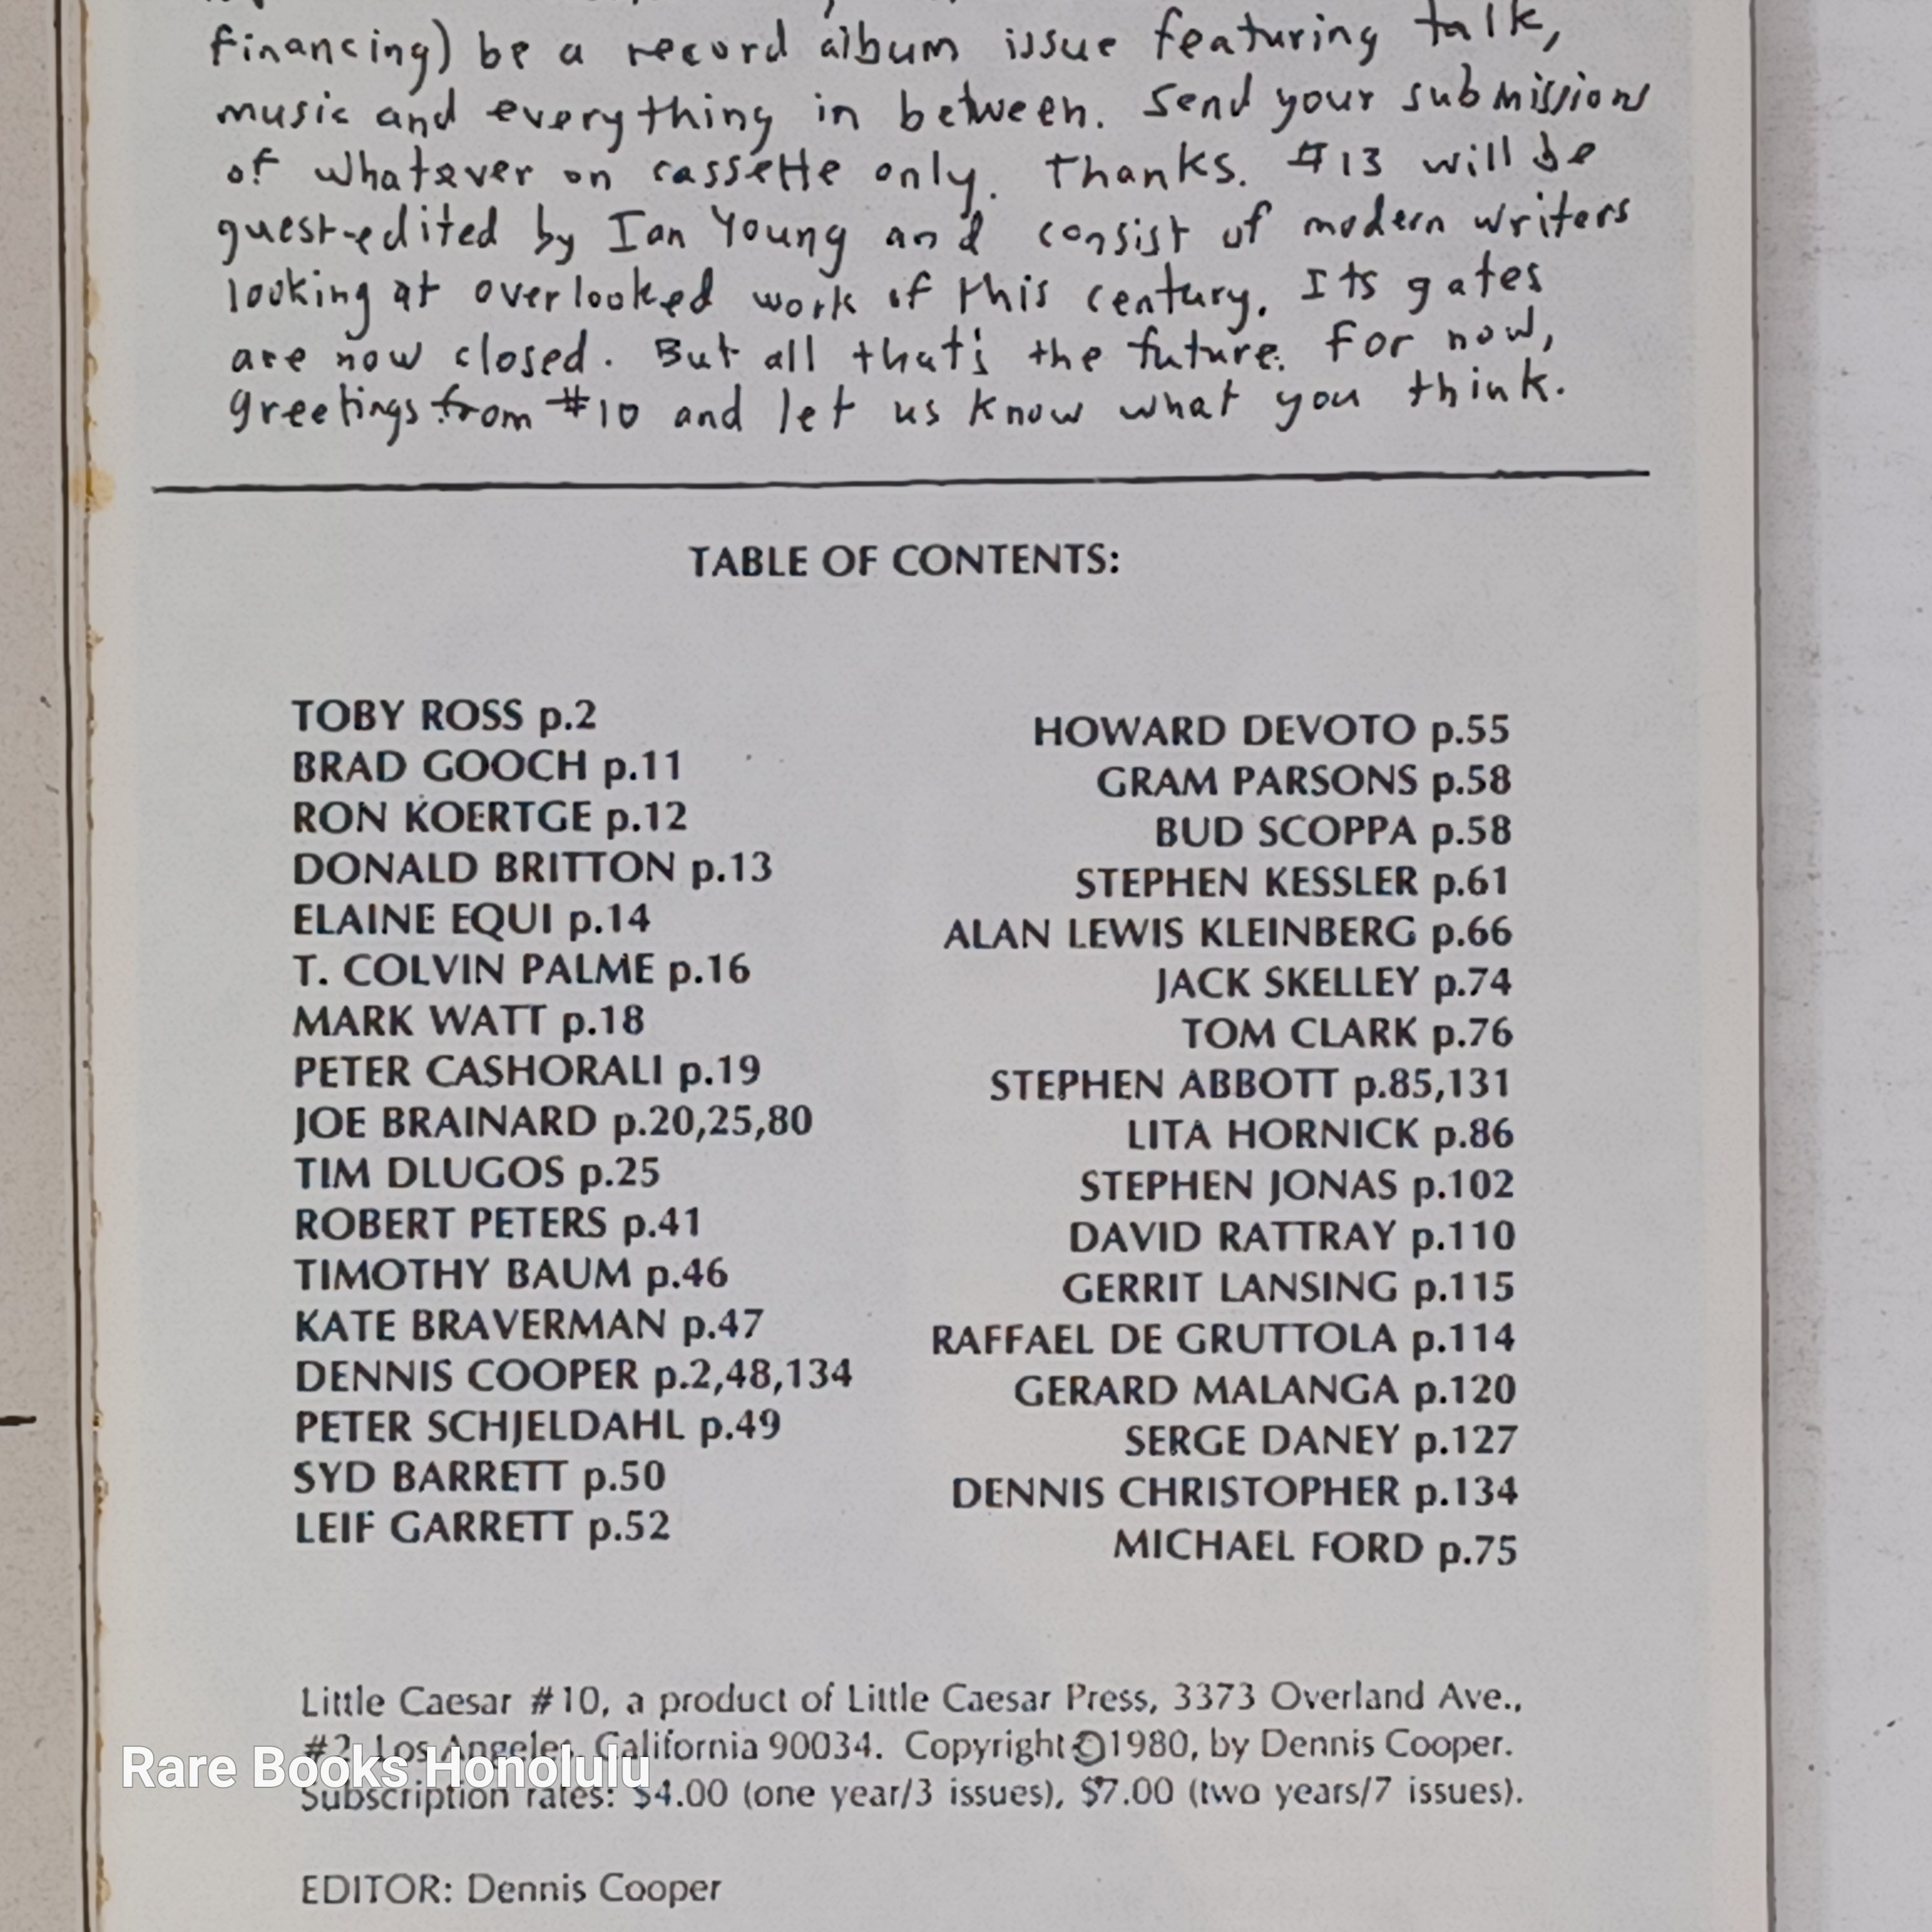 financing) be a record album issue featuring talk,
music and everything in between. Send your submissions
of whatever on cassette only. Thanks. #13 will be
guest-edited by Ian Young and consist of modern writers
looking at overlooked work of this century. Its gates
are now closed. But all that's the future. For now,
greetings from #10 and let us know what you think.
TABLE OF CONTENTS:
TOBY ROSS p.2
BRAD GOOCH p.11
RON KOERTGE p.12
DONALD BRITTON p.13
ELAINE EQUI p.14
T. COLVIN PALME p.16
MARK WATT p.18
PETER CASHORALI p.19
JOE BRAINARD p.20,25,80
TIM DLUGOS p.25
ROBERT PETERS p.41
TIMOTHY BAUM p.46
KATE BRAVERMAN p.47
DENNIS COOPER p.2,48,134
PETER SCHJELDAHL p.49
SYD BARRETT p.50
LEIF GARRETT p.52
HOWARD DEVOTO p.55
GRAM PARSONS p.58
BUD SCOPPA p.58
STEPHEN KESSLER p.61
ALAN LEWIS KLEINBERG p.66
JACK SKELLEY p.74
TOM CLARK p.76
STEPHEN ABBOTT p.85,131
LITA HORNICK p.86
STEPHEN JONAS p.102
DAVID RATTRAY p.110
GERRIT LANSING p.115
RAFFAEL DE GRUTTOLA p.114
GERARD MALANGA p.120
SERGE DANEY p.127
DENNIS CHRISTOPHER p.134
MICHAEL FORD p.75
Little Caesar #10, a product of Little Caesar Press, 3373 Overland Ave.,
#2, Los Angeles, California 90034. Copyright ©1980, by Dennis Cooper.
Subscription rates: $4.00 (one year/3 issues), $7.00 (two years/7 issues).
EDITOR: Dennis Cooper
Rare Books Honolulu